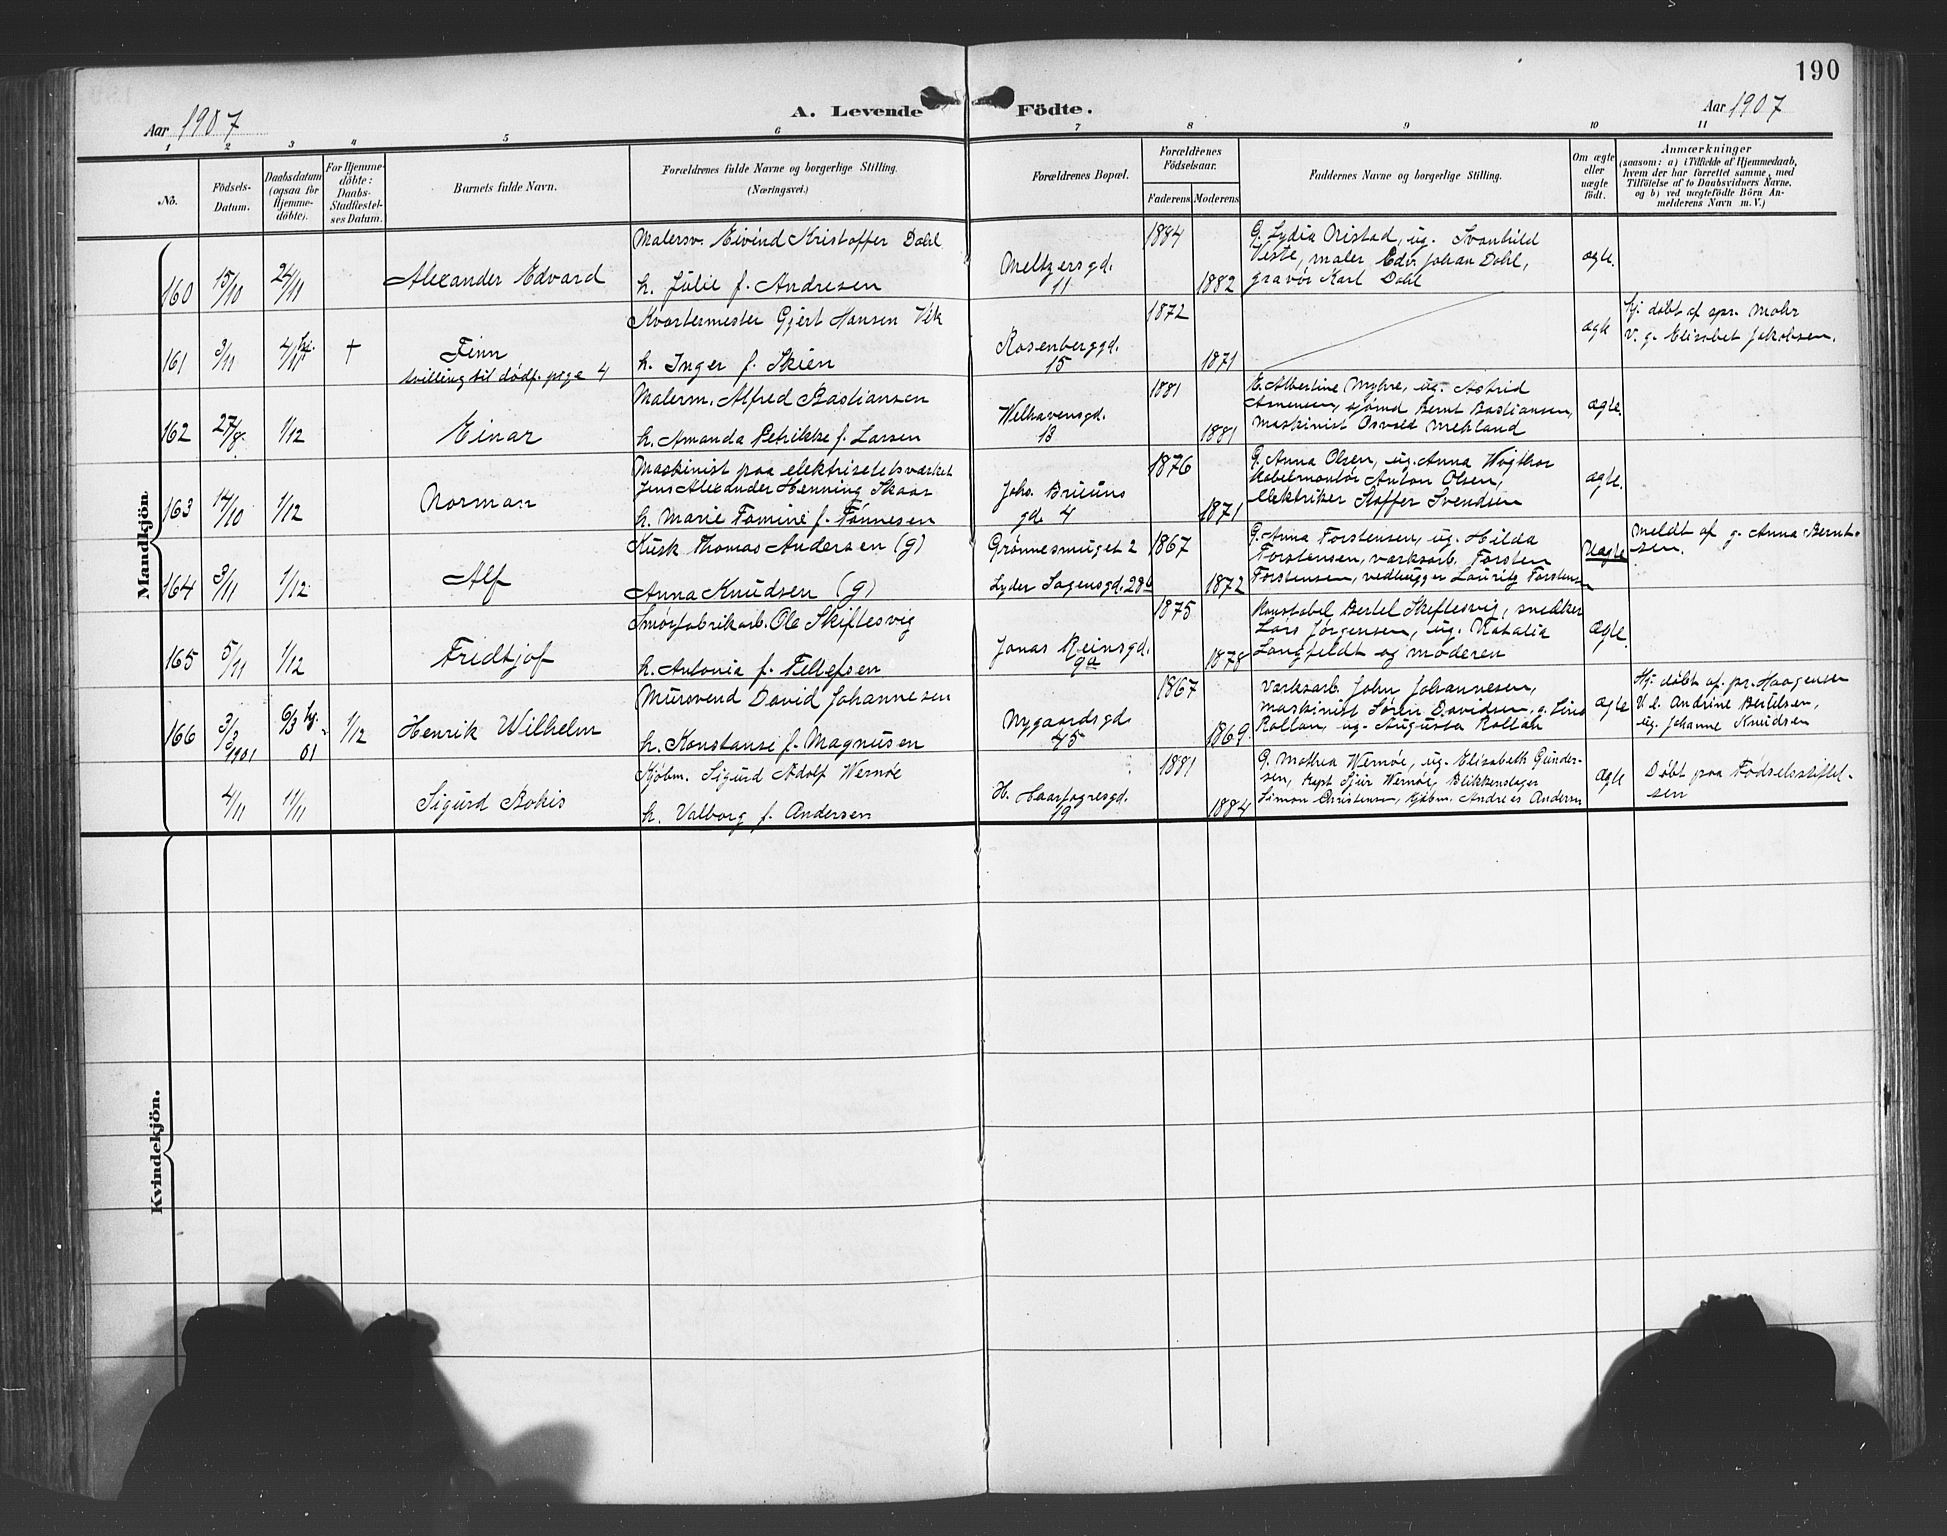 190
Aar 1907
A. Levende Födte.
Aar 1907
1 2 3 4 5 6 7 8 9 10 11
No.
Födsels-Datum.
Daabsdatum (ogsaa for Hjemme-döbte).
For Hjemme-döbte: Daabs-Stadfæstel-ses Datum.
Barnets fulde Navn.
Forældrenes fulde Navne og borgerlige Stilling.
(Næringsvei.)
Forældrenes Bopæl.
Forældrenes Födselsaar.
Faderens. Moderens.
Faddernes Navne og borgerlige Stilling.
Om ægte eller uægte födt.
Anmærkninger
(saasom: a) i Tilfælde af Hjemmedaab,
hvem der har forrettet samme, med
Tilföielse af to Daabsvidners Navne,
og b) ved uægtefödte Börn An-
melderens Navn m. V.)
Mandkjön.
160 15/10 24/11 Alexander Edvard
Malersv. Eivind Kristoffer Dahl
h. Julie f. Andresen
Meltzersgd.
11
1884
1882
G. Lydia Aristad, ug. Svanhild
Veste, maler Edv. Johan Dahl,
gravør Karl Dahl
ægte.
161 3/11 4/11 hj. † Finn
tvilling til dødf. pige 4
Kvartermester Gjert Hansen Vik
h. Inger f. Skien
Rosenberggd.
15
1872
1871
ægte
Hj. døbt af spr. Mohr
V. g. Elisabet Jakobsen.
162 27/8. 1/12 Einar
Malerm. Alfred Bastiansen
h. Amanda Petrikke f. Larsen
Welhavensgd.
13
1881
1881
E. Albertine Myhre, ug. Astrid
sjømd Bernt Bastiansen,
Maskinist Osvald Mehland
ægte.
163 14/10 1/12 Norman
Maskinist paa elektrisitetsværket
Jens Alexander Henning Skaar
h. Marie Tomine f. Tønnesen
Johs. Bruuns
gd. 4
1876
1871
G. Anna Olsen, ug. Anna
Kabelmontør Anton Olsen,
elektriker Stoffer Svendsen
ægte.
164 3/11 1/12 Alf
Kusk Thomas Andersen (g)
Anna Knudsen (g)
Grønnesmuget 2
Lyder Sagensgd. 28b
1867
1872
G. Anna Torstensen, ug. Hilda
Torstensen, værksarb. Torsten
Torstensen, vedhugger Lauritz Torstensen
Uægte
Meldt af g. Anna Bernt-
sen.
165 5/11 1/12 Fridtjof
Smørfabrikarb. Ole Skiftesvig
h. Antonia f. Tellefsen
Jonas Reinsgd.
9a
1875
1878
Konstabel Bertel Skiftesvig, snedker
Lars Jørgensen, ug. Natalia
Langfeldt og moderen
ægte.
166 3/2 1901 6/3 hj. 01 1/12 Henrik Wilhelm
Mursvend David Johannesen
h. Konstanse f. Magnusen
Nygaardsgd.
45
1867
1869.
Værksarb. John Johannesen,
maskinist Søren Davidsen, g. Lina
Rollan, ug. Augusta Rollan
ægte
Hj. døbt af pr. Haagensen
V. e. Andrine Bertelsen,
ug. Johanne Knudsen
4/11 11/11 Sigurd Bokis
Kjøbm. Sigurd Adolf Wernøe
h. Valborg f. Andersen
H. Haarfagresgd.
19
1881
1884
G. Mathea Wernøe, ug. Elisabeth Gunder-
sen, Kept. Sjur Wernøe, Blikkenslager
Simon Christensen, Kjøbm. Andreas Andersen
ægte
Døbt paa Fødselsstiftel-
sen
Kvindekjön.